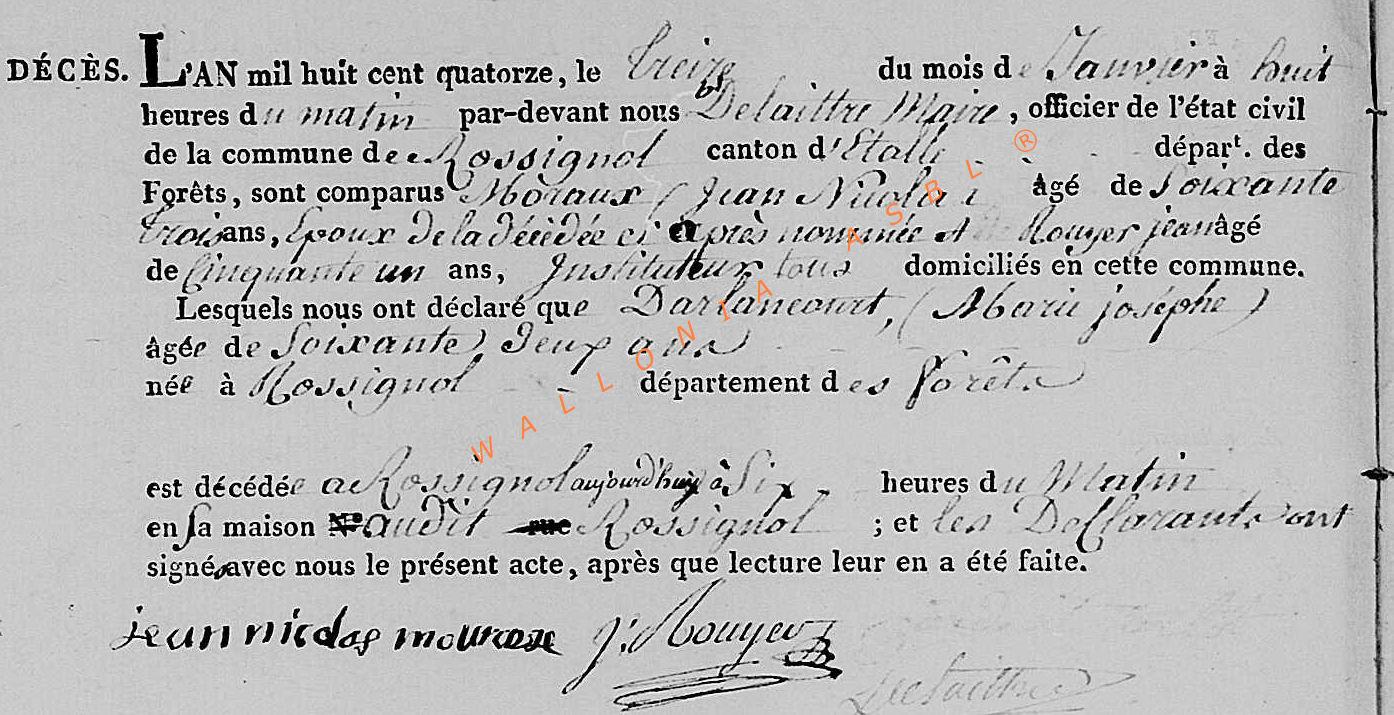 DÉCÈS. L'AN mil huit cent quatorze, le treize du mois de Janvier à huit
heures du matin par-devant nous Delaittre Maire, officier de l'état civil
de la commune de Rossignol canton d'Etalle départ. des
Forêts, sont comparus Moraux (Jean Nicolas âgé de Soixante
trois ans, Epoux de la décédée ci après nommée et Rouyer jean âgé
de Cinquante un ans, Instituteur tous domiciliés en cette commune.
Lesquels nous ont déclaré que Darlancourt, (Marie josephe)
âgée de Soixante deux ans
née à Rossignol département des forêts
est décédée a Rossignol aujourd'huy à Six heures du Matin
en sa maison audit Rossignol ; et les Déclarants ont
signé avec nous le présent acte, après que lecture leur en a été faite.
jean nicolas J: Rouyer
Delaittre
WALLONIA ASBL ®